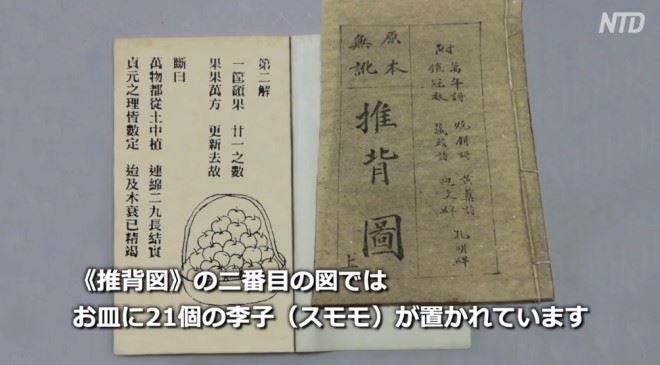 NTD
第二解
一筐碩果 廿一之數
果果萬方 更新去故
斷曰
萬物都從土中植 連綿二九長結實
貞元之理皆數定 迨及木衰已精竭
附
燒餅詩 黃蘗詩 孔明碑
原本
無訛
推背圖
上
《推背図》の二番目の図では
お皿に21個の李子（スモモ）が置かれています